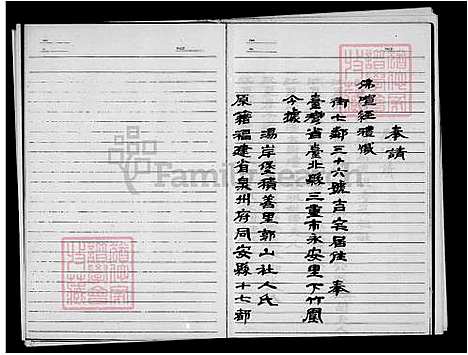 原籍福建省泉州府同安縣十七都
湯岸堡積善里郭山社人氏
今據
臺灣省臺北縣三重市永安里下竹圍
街七鄰三十六號吉宅居住 奉
佛喧經禮懺
奉請
FamilySearch